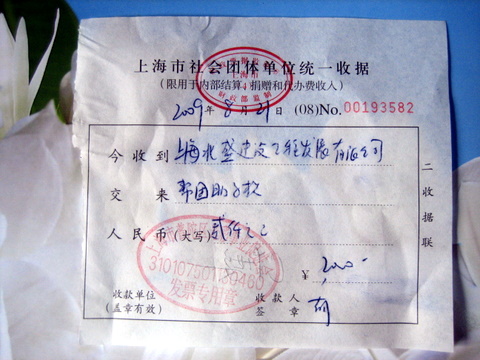 上海市社会团体单位统一收据
(限用于内部结算、捐赠和代办费收入)
2009年8月21日 (08)No.00193582
今收到 上海 建设工程发展有限公司
交来 帮困助
人民币(大写) 贰仟元正
¥ 2,000-
收款单位
(盖章有效)
收款人
签章
二收据联
上海市
财政部监制
310107501
发票专用章